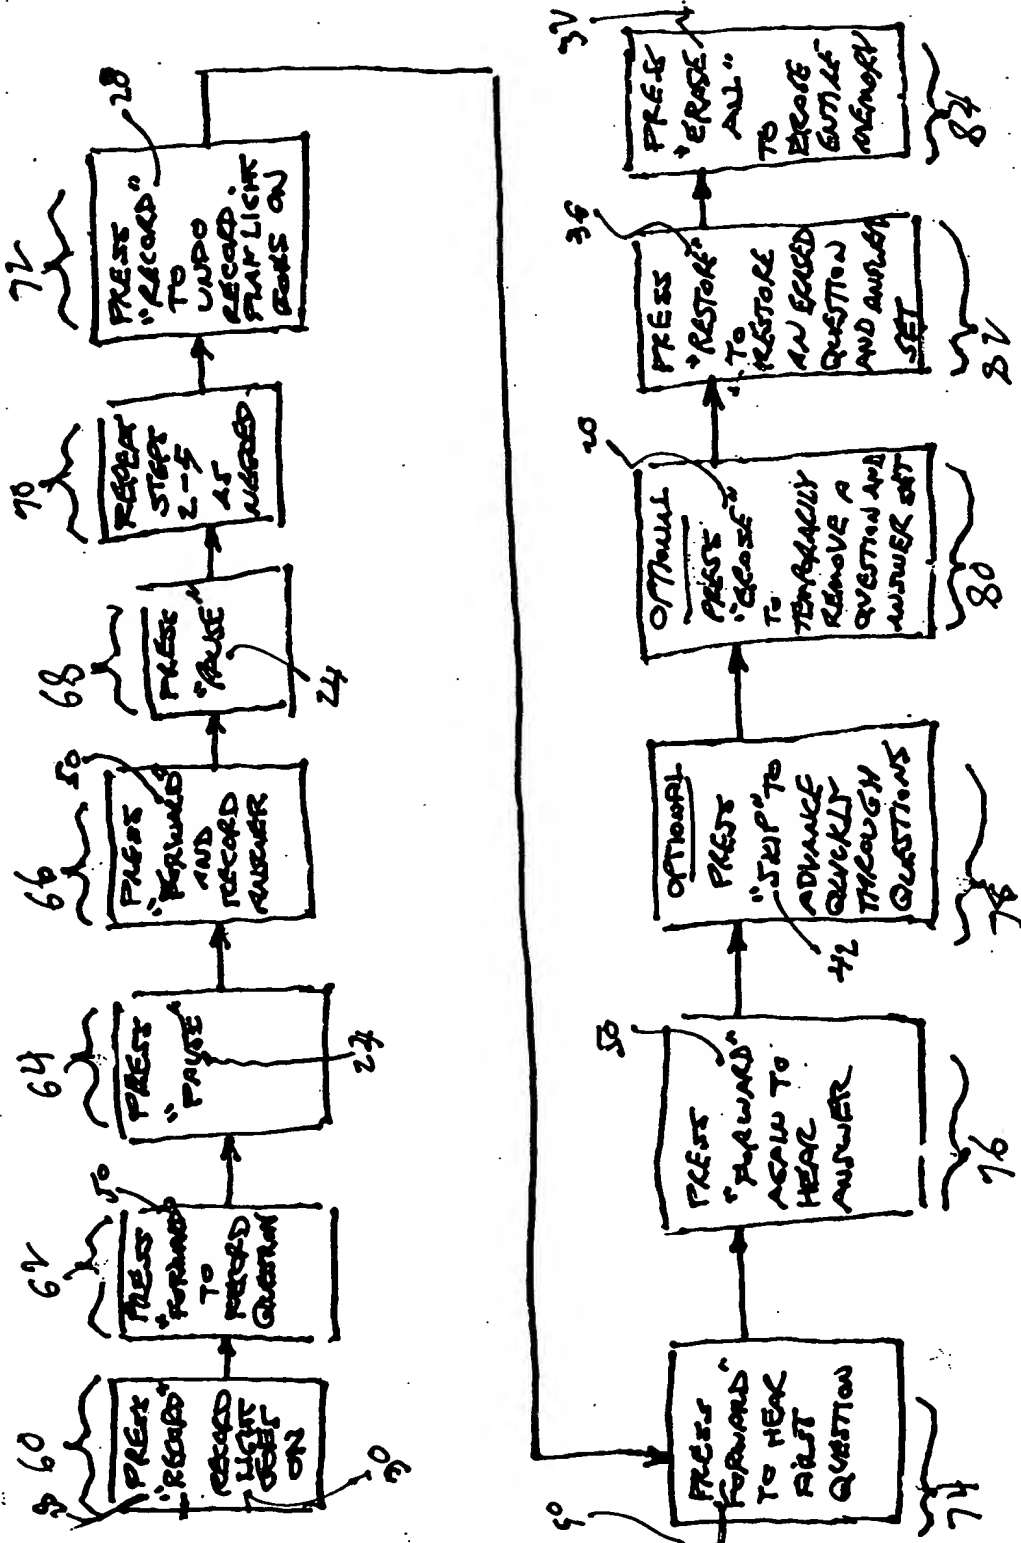 60
28
PRESS
"RECORD"
RECORD
LIGHT
GOES
ON
30
62
50
PRESS
"FORWARD"
TO
RECORD
QUESTION
64
PRESS
"PAUSE"
24
66
50
PRESS
"FORWARD"
AND
RECORD
ANSWER
68
PRESS
"PAUSE"
24
70
REPEAT
STEPS
2-5
AS
NEEDED
72
28
PRESS
"RECORD"
TO
UNDO
RECORD.
PLAY LIGHT
GOES ON
50
PRESS
"FORWARD"
TO HEAR
FIRST
QUESTION
74
50
PRESS
"FORWARD"
AGAIN TO
HEAR
ANSWER
76
OPTIONAL
PRESS
"SKIP" TO
ADVANCE
QUICKLY
THROUGH
QUESTIONS
42
78
20
OPTIONAL
PRESS
"ERASE"
TO
TEMPORARILY
REMOVE A
QUESTION AND
ANSWER SET
80
36
PRESS
"RESTORE"
TO
RESTORE
AN ERASED
QUESTION
AND ANSWER
SET
82
32
PRESS
"ERASE
ALL"
TO
ERASE
ENTIRE
MEMORY
84